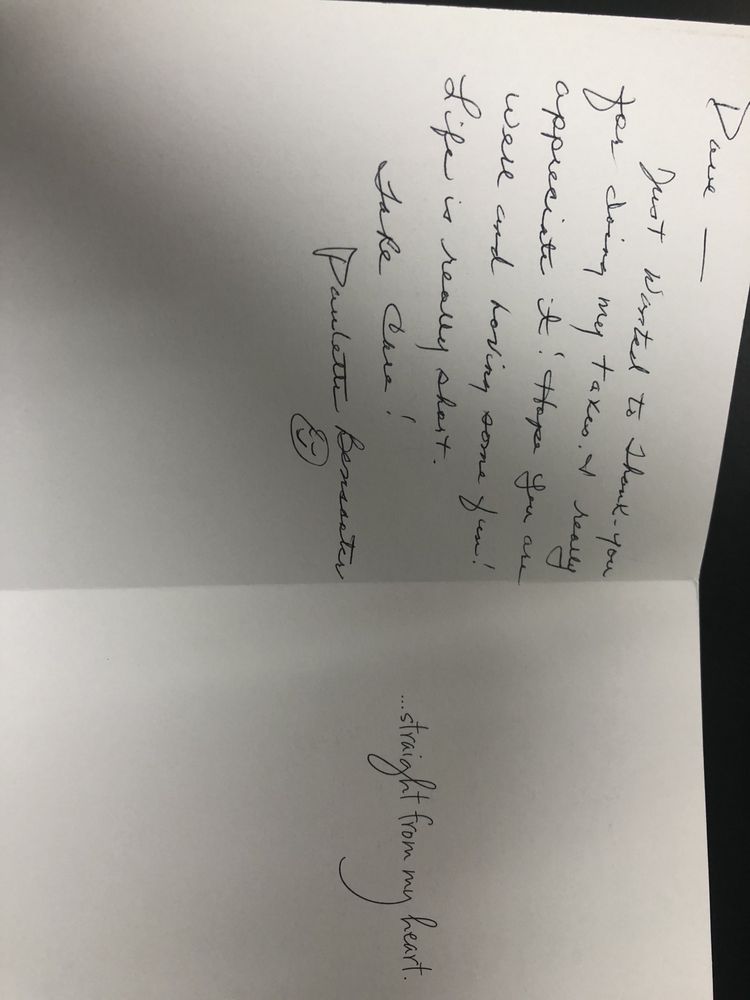 Dave —
Just wanted to thank-you
for doing my taxes. I really
appreciate it! Hope you are
well and having some fun!
Life is really short.
Take Care!
Paulette
...straight from my heart.